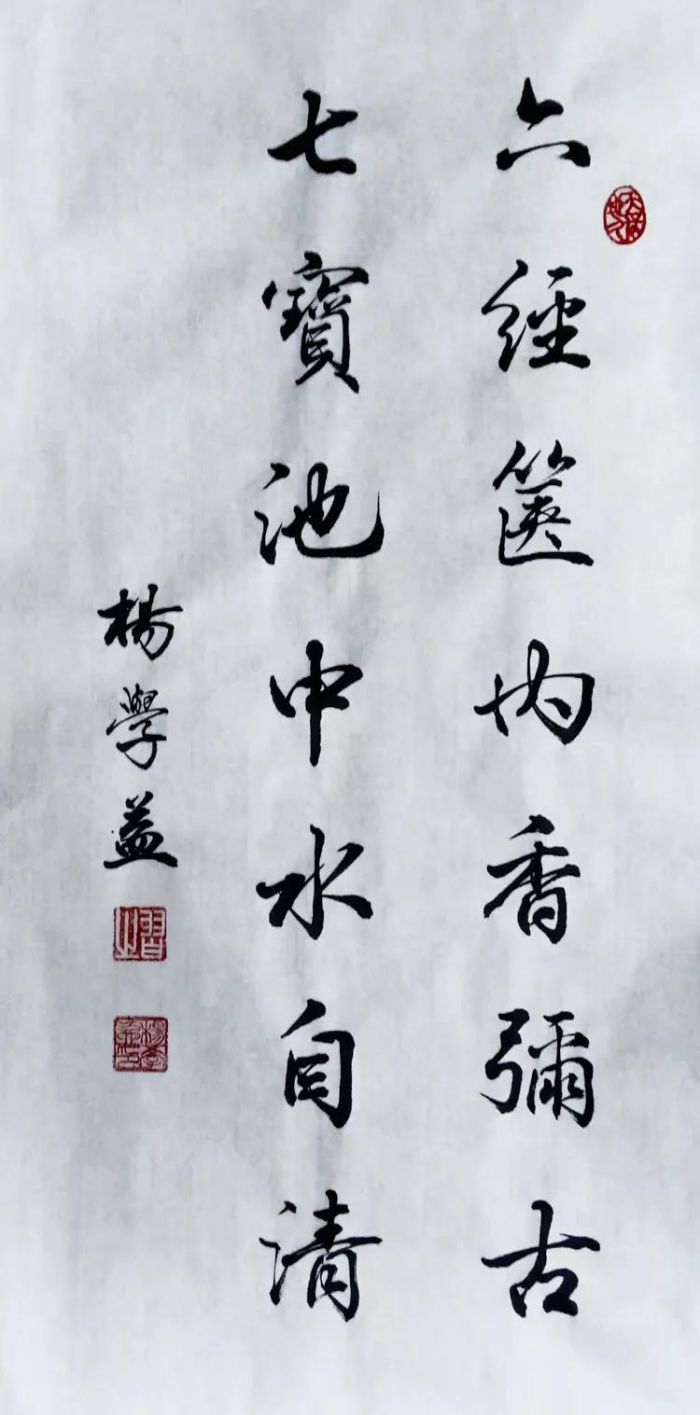 六經篋内香彌古
七寶池中水自清
楊學益